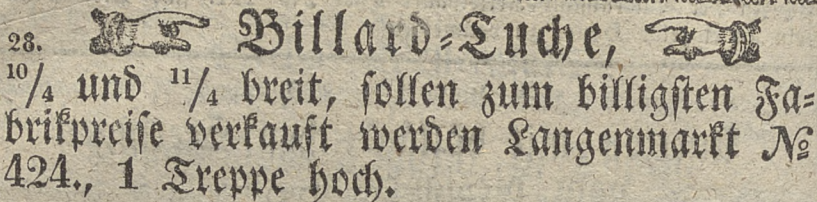 28. ☞ Billard-Tuche, ☜
10/4 und 11/4 breit, sollen zum billigsten Fa-
brikpreise verkauft werden Langenmarkt №
424., 1 Treppe hoch.